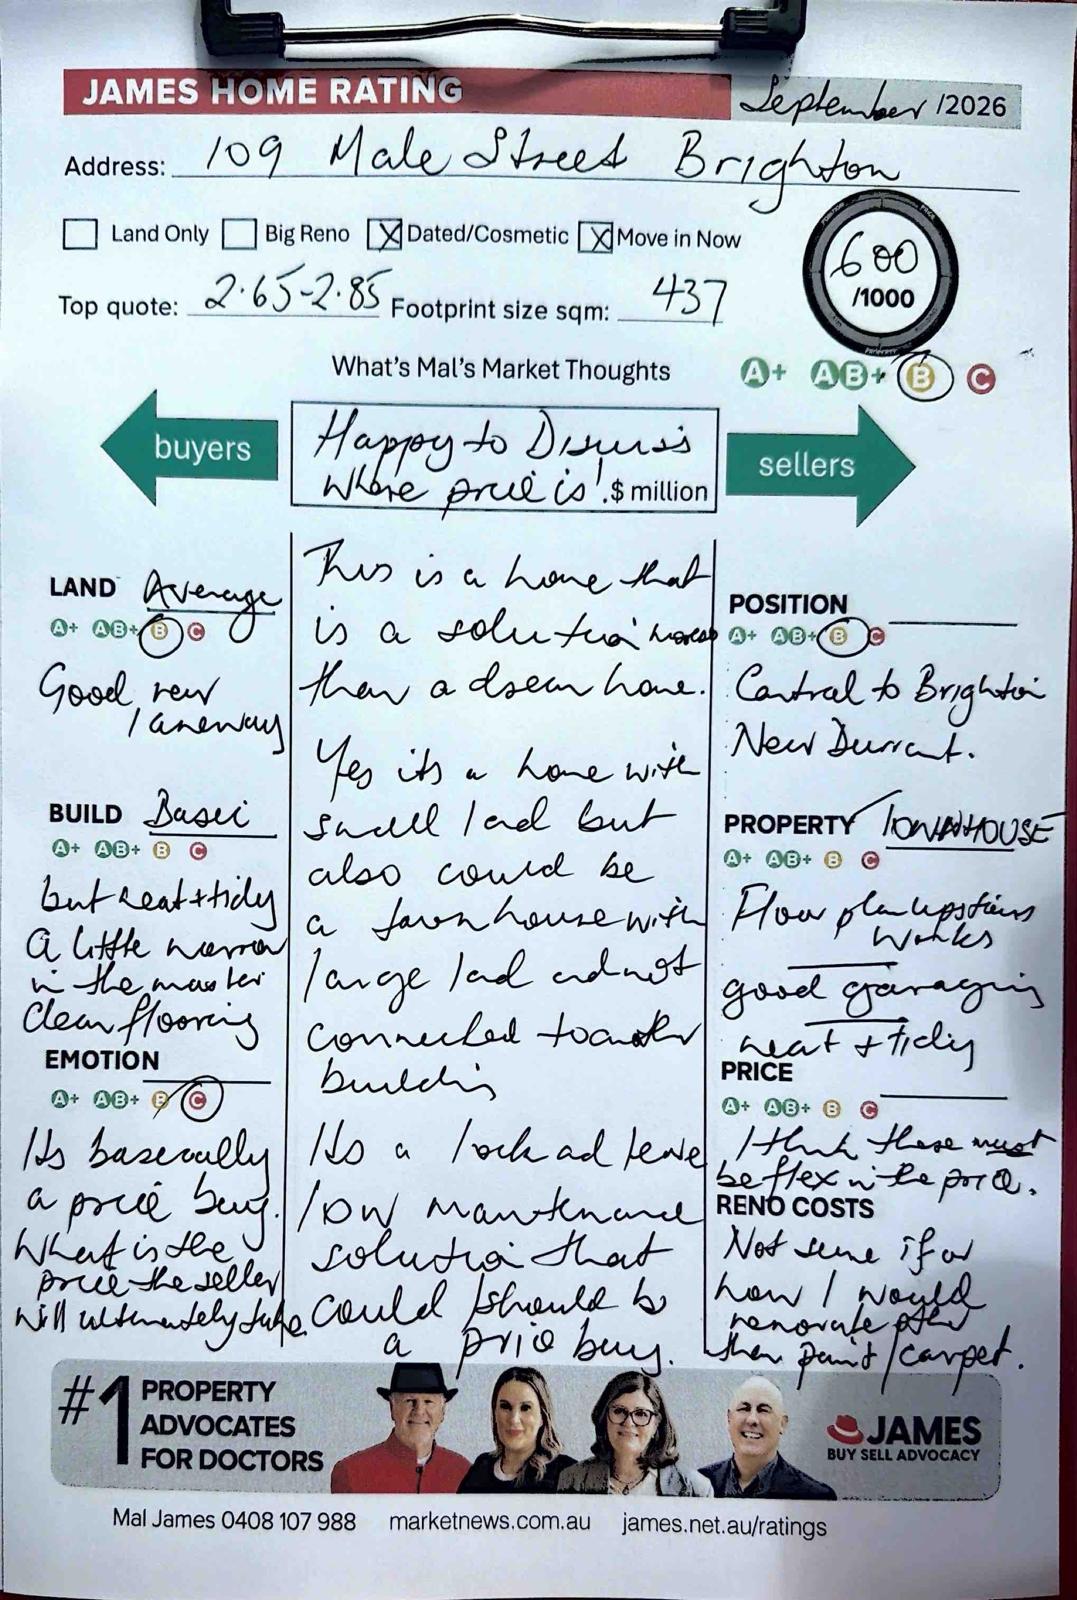 JAMES HOME RATING
September /2026
Address: 109 Male Street Brighton
Land Only Big Reno Dated/Cosmetic Move in Now
600
/1000
Top quote: 2.65-2.85 Footprint size sqm: 437
What's Mal's Market Thoughts
A+ AB+ B C
buyers
Happy to Discuss
where price is! .$ million
sellers
LAND Average
A+ AB+ B C
Good rear
laneway
BUILD Basic
A+ AB+ B C
but neat + tidy
A little narrow
in the master
Clean flooring
EMOTION
A+ AB+ B C
Its basically
a price buy.
What is the
price the seller
will ultimately take.
This is a home that
is a solution more
than a dream home.
Yes its a home with
small land but
also could be
a townhouse with
large land and not
connected to another
building
Its a lock and leave
low maintenance
solution that
could/should be
a price buy.
POSITION
A+ AB+ B C
Central to Brighton
New Durrant.
PROPERTY TOWNHOUSE
A+ AB+ B C
Floor plan upstairs
works
good garaging
neat + tidy
PRICE
A+ AB+ B C
I think there must
be flex in the price.
RENO COSTS
Not sure if or
how I would
renovate other
then paint/carpet.
#1 PROPERTY
ADVOCATES
FOR DOCTORS
JAMES
BUY SELL ADVOCACY
Mal James 0408 107 988 marketnews.com.au james.net.au/ratings